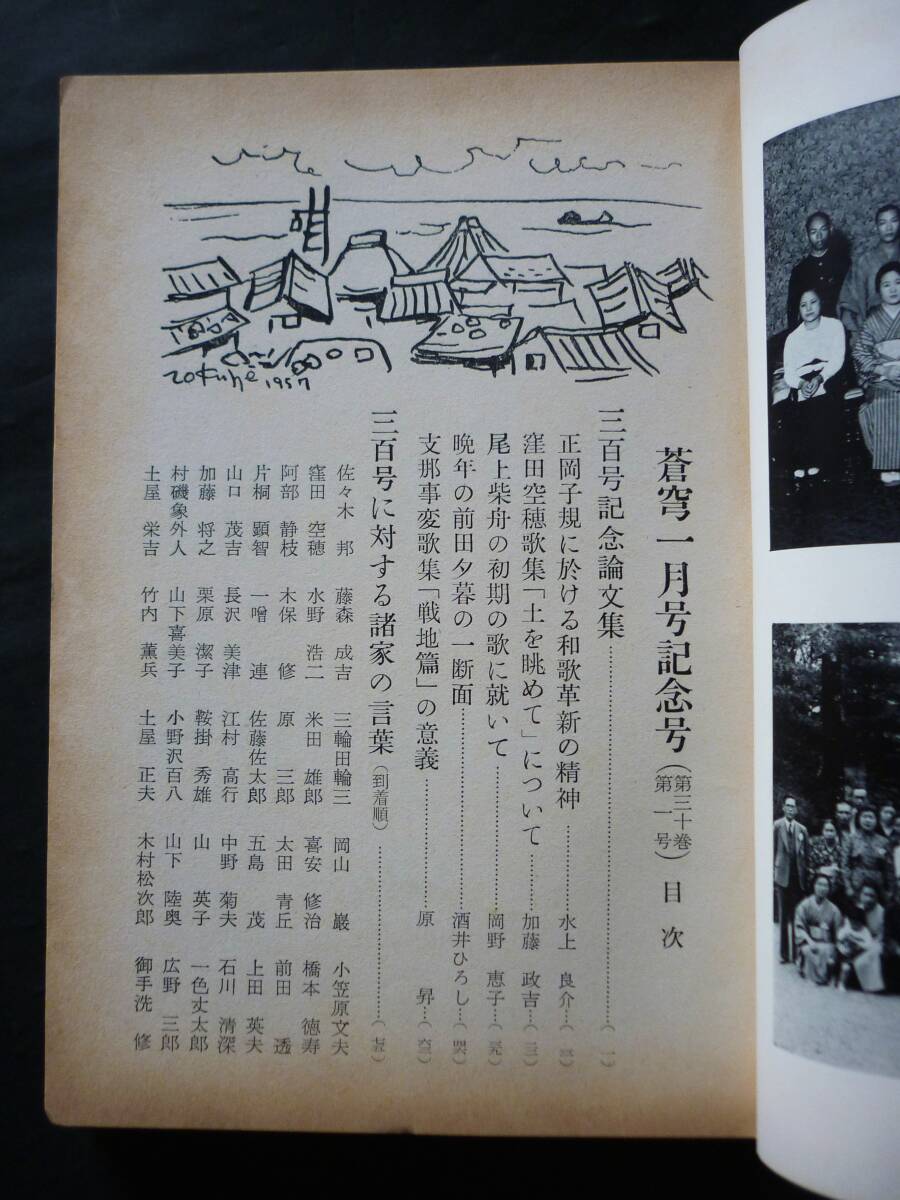 1957
蒼穹一月号記念号（第三十巻第一号）目次
三百号記念論文集……（一）
正岡子規に於ける和歌革新の精神……水上 良介…
窪田空穂歌集「土を眺めて」について……加藤 政吉…
尾上柴舟の初期の歌に就いて……岡野 恵子…
晩年の前田夕暮の一断面……酒井ひろし…
支那事変歌集「戦地篇」の意義……原 昇…
三百号に対する諸家の言葉（到着順）……
佐々木 邦 藤森 成吉 三輪田輪三 岡山 巌 小笠原文夫
窪田 空穂 水野 浩二 米田 雄郎 喜安 修治 橋本 徳寿
阿部 静枝 木保 修 原 三郎 太田 青丘 前田 透
片桐 顕智 一噌 連 佐藤佐太郎 五島 茂 上田 英夫
山口 茂吉 長沢 美津 江村 高行 中野 菊夫 石川 清深
加藤 将之 栗原 潔子 鞍掛 秀雄 山 英子 一色丈太郎
村磯象外人 山下喜美子 小野沢百八 山下 陸奥 広野 三郎
土屋 栄吉 竹内 薫兵 土屋 正夫 木村松次郎 御手洗 修